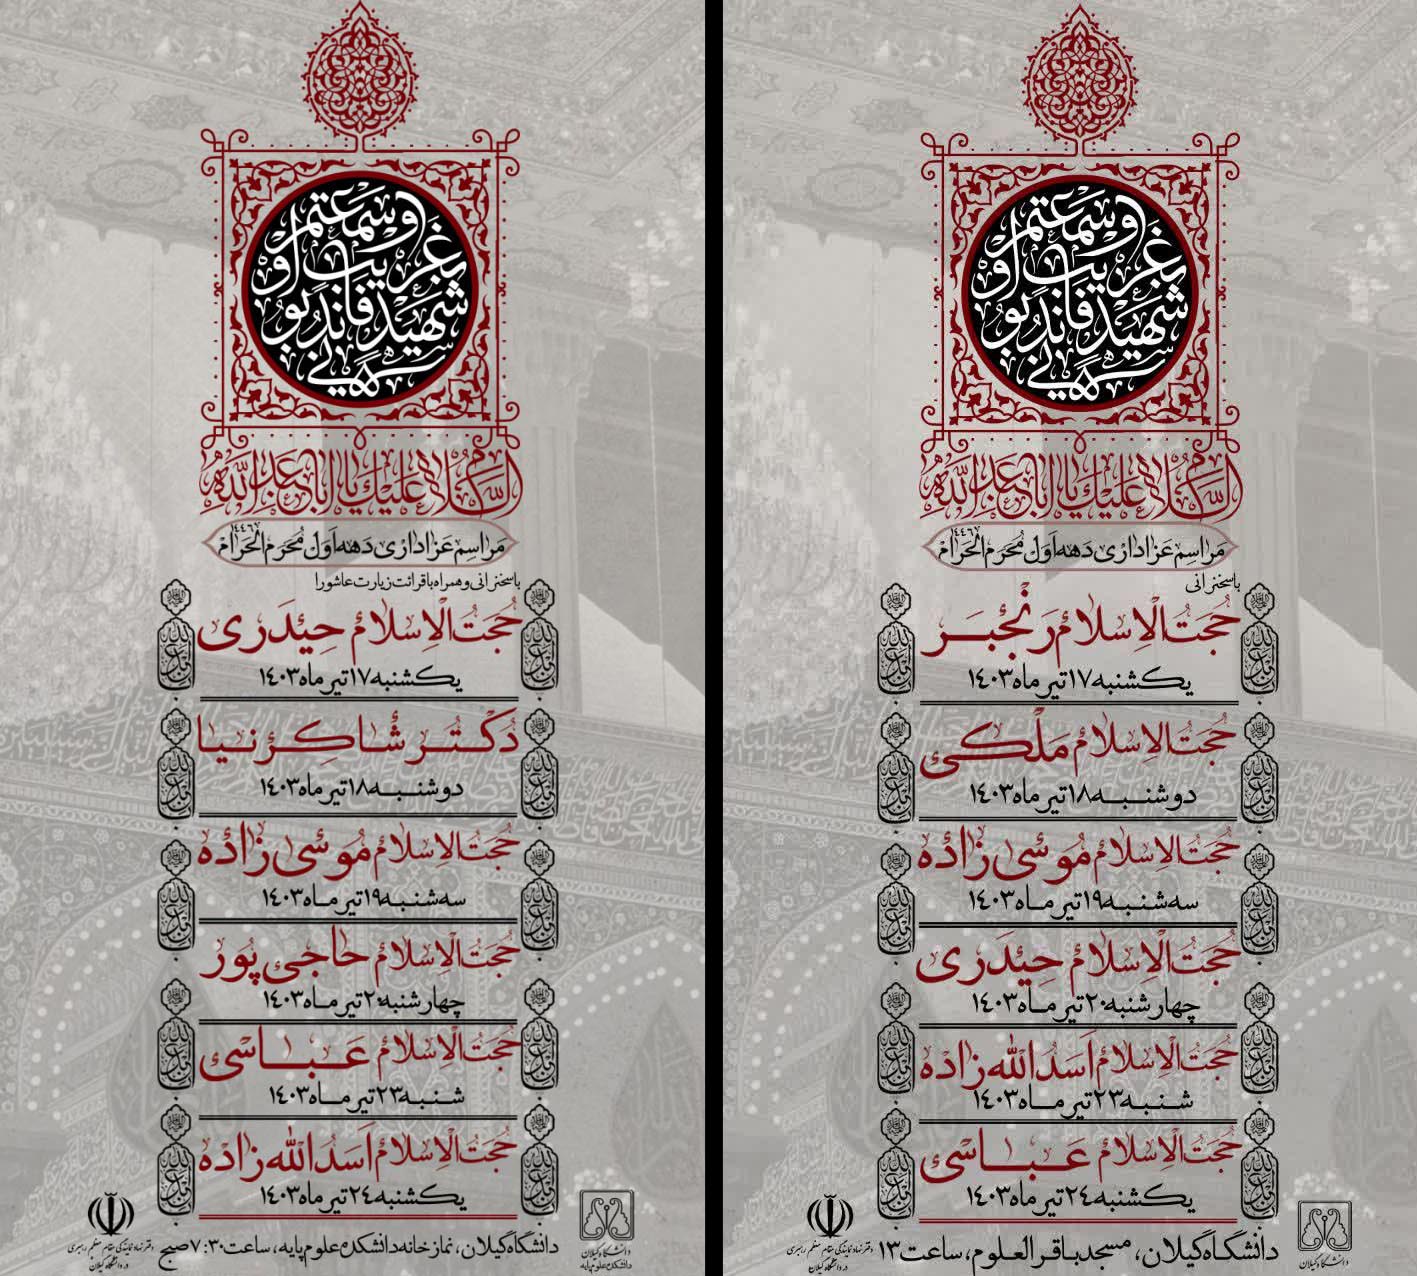 او سمعتم
بغریب او
شهید فاندبو
نی
السلام علیک یا اباعبدالله
مراسم عزاداری دهه اول محرم الحرام ۱۴۴۶
با سخنرانی و همراه با قرائت زیارت عاشورا
حجت الاسلام حیدری
یکشنبه ۱۷ تیر ماه ۱۴۰۳
دکتر شاکرنیا
دوشنبه ۱۸ تیر ماه ۱۴۰۳
حجت الاسلام موسی زاده
سه شنبه ۱۹ تیر ماه ۱۴۰۳
حجت الاسلام حاجی پور
چهارشنبه ۲۰ تیر ماه ۱۴۰۳
حجت الاسلام عباسی
شنبه ۲۳ تیر ماه ۱۴۰۳
حجت الاسلام اسدالله زاده
یکشنبه ۲۴ تیر ماه ۱۴۰۳
دانشگاه گیلان، نمازخانه دانشکده علوم پایه، ساعت ۷:۳۰ صبح
دفتر نهاد نمایندگی مقام معظم رهبری
در دانشگاه گیلان
دانشگاه گیلان
دانشکده علوم پایه
او سمعتم
بغریب او
شهید فاندبو
نی
السلام علیک یا اباعبدالله
مراسم عزاداری دهه اول محرم الحرام ۱۴۴۶
با سخنرانی
حجت الاسلام رنجبر
یکشنبه ۱۷ تیر ماه ۱۴۰۳
حجت الاسلام ملکی
دوشنبه ۱۸ تیر ماه ۱۴۰۳
حجت الاسلام موسی زاده
سه شنبه ۱۹ تیر ماه ۱۴۰۳
حجت الاسلام حیدری
چهارشنبه ۲۰ تیر ماه ۱۴۰۳
حجت الاسلام اسدالله زاده
شنبه ۲۳ تیر ماه ۱۴۰۳
حجت الاسلام عباسی
یکشنبه ۲۴ تیر ماه ۱۴۰۳
دانشگاه گیلان، مسجد باقرالعلوم، ساعت ۱۳
دفتر نهاد نمایندگی مقام معظم رهبری
در دانشگاه گیلان
دانشگاه گیلان